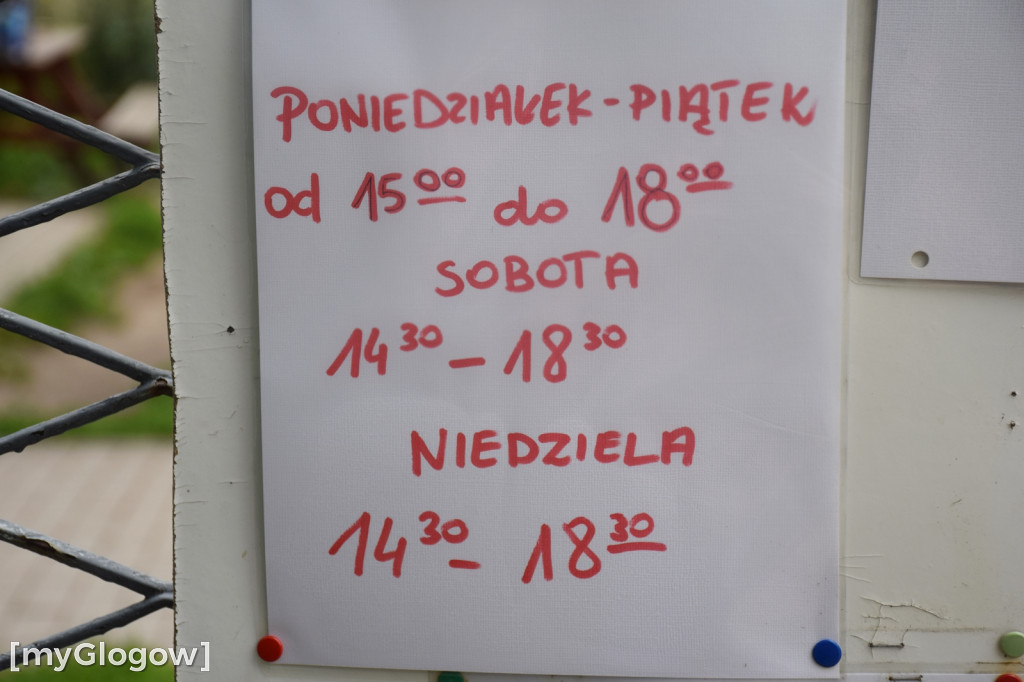 PONIEDZIAŁEK - PIĄTEK
od 15⁰⁰ do 18⁰⁰
SOBOTA
14³⁰ - 18³⁰
NIEDZIELA
14³⁰ - 18³⁰
[myGlogow]